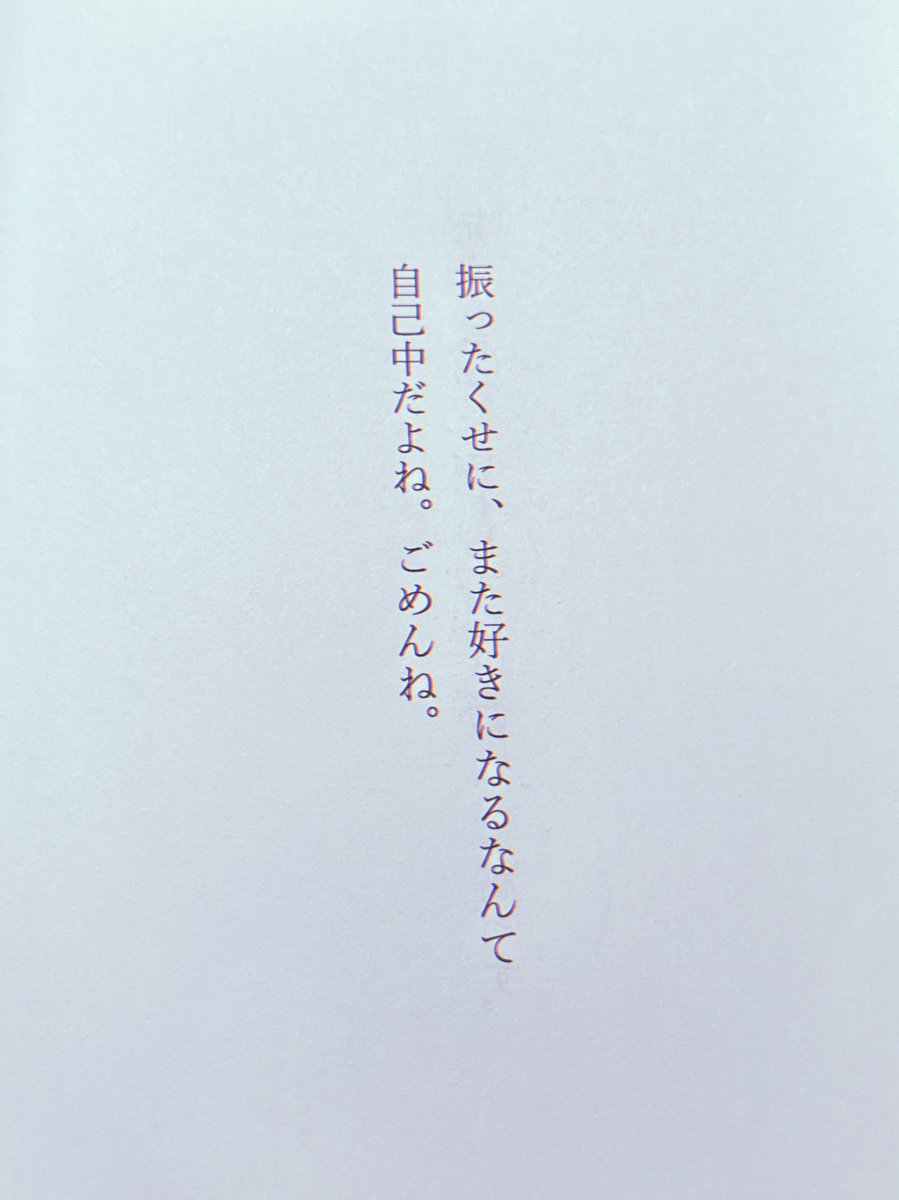 振ったくせに、また好きになるなんて
自己中だよね。ごめんね。